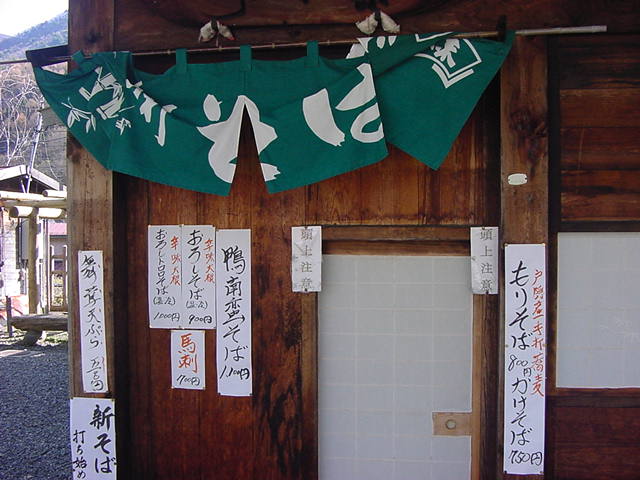 そば
頭上注意
頭上注意
辛味大根
おろしそば
(温、冷)
900円
辛味大根
おろしトロロそば
(温、冷)
1,000円
鴨南蛮そば
1,100円
馬刺
700円
舞茸天ぷら
新そば
打ち始め
戸隠産手打蕎麦
もりそば
800円
かけそば
750円